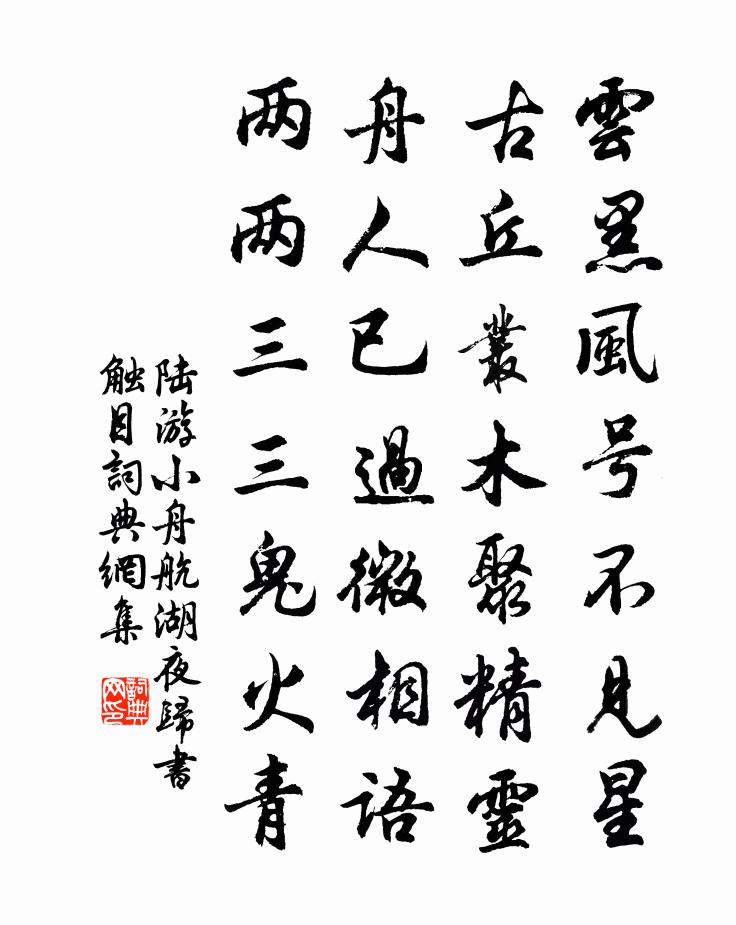 雲黑風号不見星
古丘叢木聚精靈
舟人已過微相語
两两三三鬼火青
陆游小舟航湖夜歸書
触目詞典網集
詞典网印